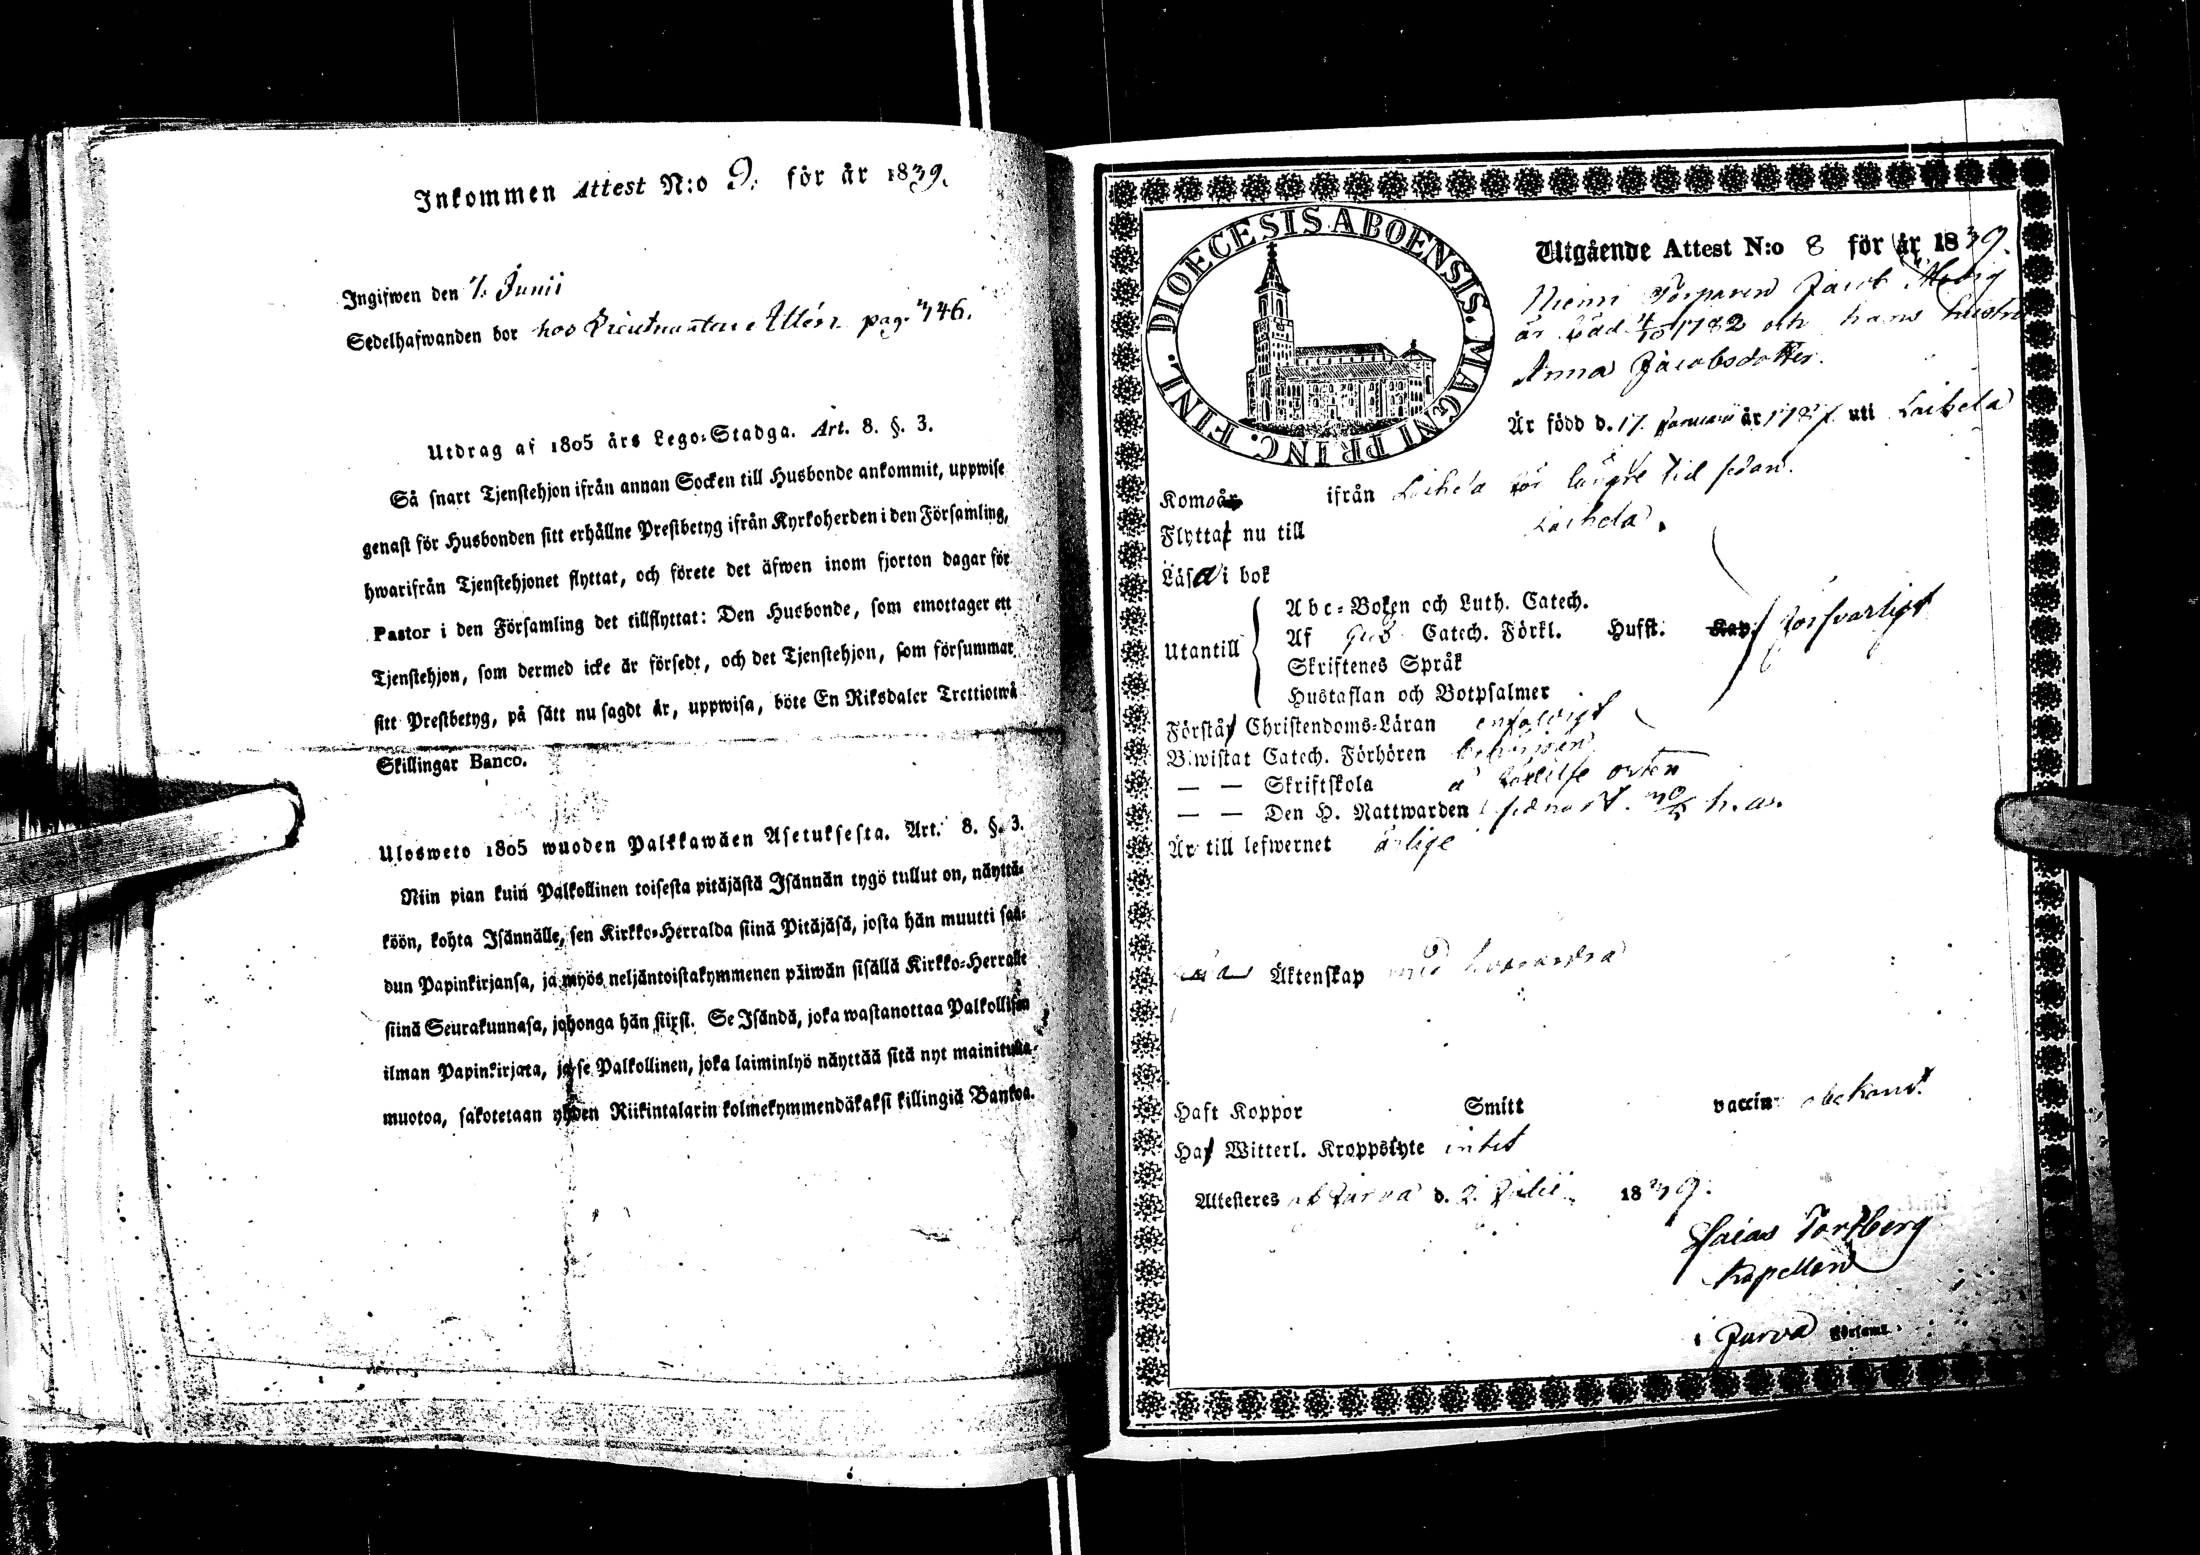 Inkommen Attest N:o 9. för år 1839.
Ingifwen den 7. Junii
Sedelhafwanden bor hos Lieutnanten pag. 746.
Utdrag af 1805 års Lego-Stadga. Art. 8. §. 3.
Så snart Tjenstehjon ifrån annan Socken till Husbonde ankommit, uppwise
genast för Husbonden sitt erhållne Prestbetyg ifrån Kyrkoherden i den Församling,
hwarifrån Tjenstehjonet flyttat, och förete det äfwen inom fjorton dagar för
Pastor i den Församling det tillflyttat: Den Husbonde, som emottager ett
Tjenstehjon, som dermed icke är försedt, och det Tjenstehjon, som försummar
sitt Prestbetyg, på sätt nu sagdt är, uppwisa, böte En Riksdaler Trettiotwå
Skillingar Banco.
Ulosweto 1805 wuoden Palkkawäen Asetuksesta. Art. 8. §. 3.
Niin pian kuin Palkollinen toisesta pitäjästä Isännän tygö tullut on, näyttä-
köön, kohta Isännälle, sen Kirkko-Herralda siinä Pitäjäsä, josta hän muutti saa-
dun Papinkirjansa, ja myös neljäntoistakymmenen päiwän sisällä Kirkko-Herralle
siinä Seurakunnasa, johonga hän siirsi. Se Isändä, joka wastanottaa Palkollisen
ilman Papinkirjata, ja se Palkollinen, joka laiminlyö näyttää sitä nyt mainitulla
muotoa, sakotetaan yhden Riikintalarin kolmekymmendäkaksi killingiä Bankoa.
DIOECESIS ABOENSIS. MAGNI PRINC. FINL.
Utgående Attest N:o 8 för år 1839.
Niemi Torparen Jacob
är född 4/10 1782 och hans hustru
Anna Jacobsdotter.
Är född d. 17. Januarii år 1787. uti Laihela
Kom år ifrån Laihela för längre tid sedan.
Flyttar nu till Laihela.
Läsa i bok
Utantill
Abc-Boken och Luth. Catech.
Af Catech. Förkl. Husst. Kap. försvarligt
Skriftenes Språk
Hustaflan och Botpsalmer
Förstå Christendoms-Läran enfaldigt
Biwistat Catech. Förhören behörigen
— — Skriftskola å orten
— — Den H. Nattwarden senast h. a.
Är till lefwernet ärlige
Äktenskap med hvarandra
Haft Koppor Smitt vaccin obekant.
Haf Witterl. Kroppslyte intet
Attesteres af Jurva d. 2. Julii 1839.
Esaias Forsberg
Kapellan
i Jurva Församl.